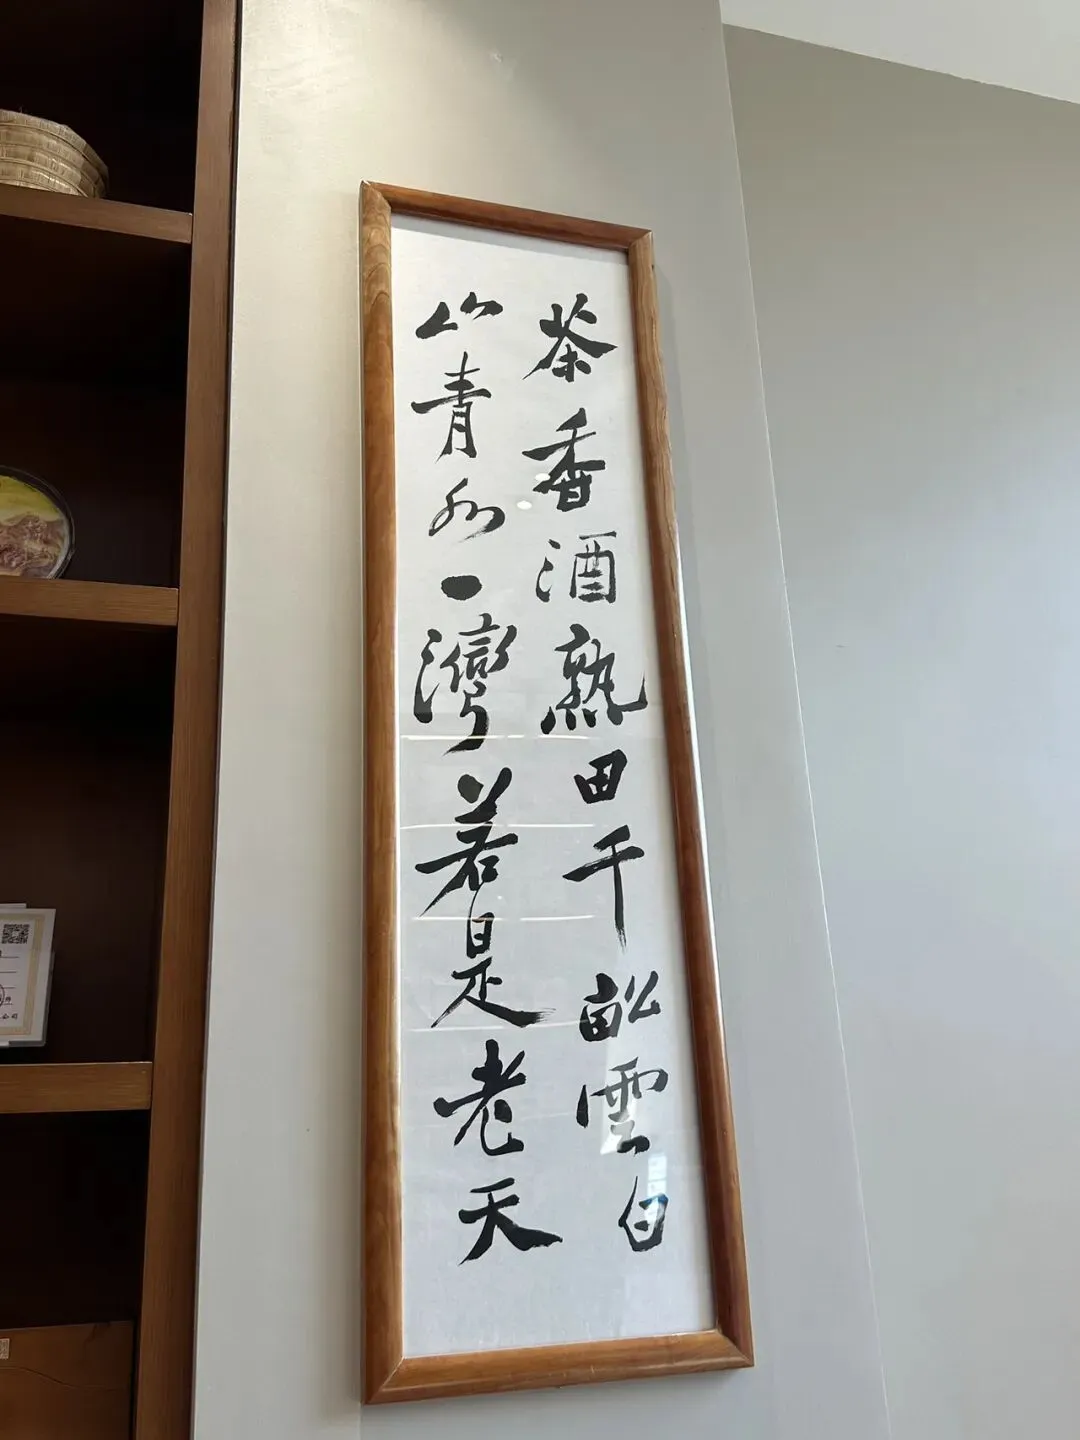 茶香酒熟田千畝雲白
山青水一灣若是老天